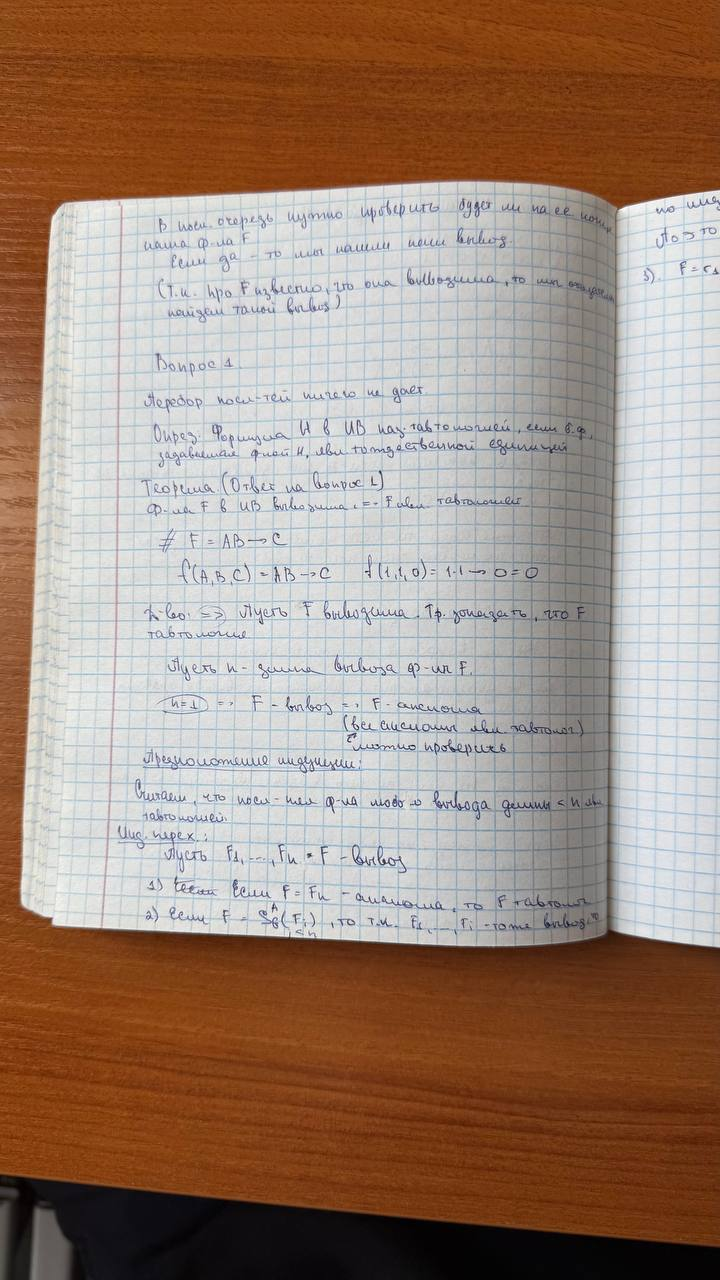 В посл. очередь нужно проверить будет ли на ее конце
наша ф-ла F
Если да - то мы нашли наш вывод.
(т.к. про F известно, что она выводима, то мы
найдем такой вывод)
Вопрос 1.
Перебор посл-тей ничего не дает.
Опред. Формула A в ИВ наз. тавтологией, если б.ф.,
задаваемая ф-лой A, явл тождественной единицей
Теорема (Ответ на вопрос 1)
Ф-ла F в ИВ выводима <=> F явл тавтологией
# F = AB → C
f(A,B,C) = AB → C f(1,1,0) = 1·1 → 0 = 0
Д-во: => Пусть F выводима. Тр. доказать, что F
тавтология
Пусть n - длина вывода ф-лы F.
n=1 => F - вывод => F - аксиома
(все аксиомы явл тавтолог)
можно проверить
Предположение индукции:
Считаем, что посл-няя ф-ла любого вывода длины < n явл
тавтологией.
Инд. перех.:
Пусть F1, ..., Fn = F - вывод
1) Если F = Fn - аксиома, то F тавтолог
2) Если F = S (Fi) , то т.к. F1, ..., Fi - тоже вывод
i<n
по инд
3). F =